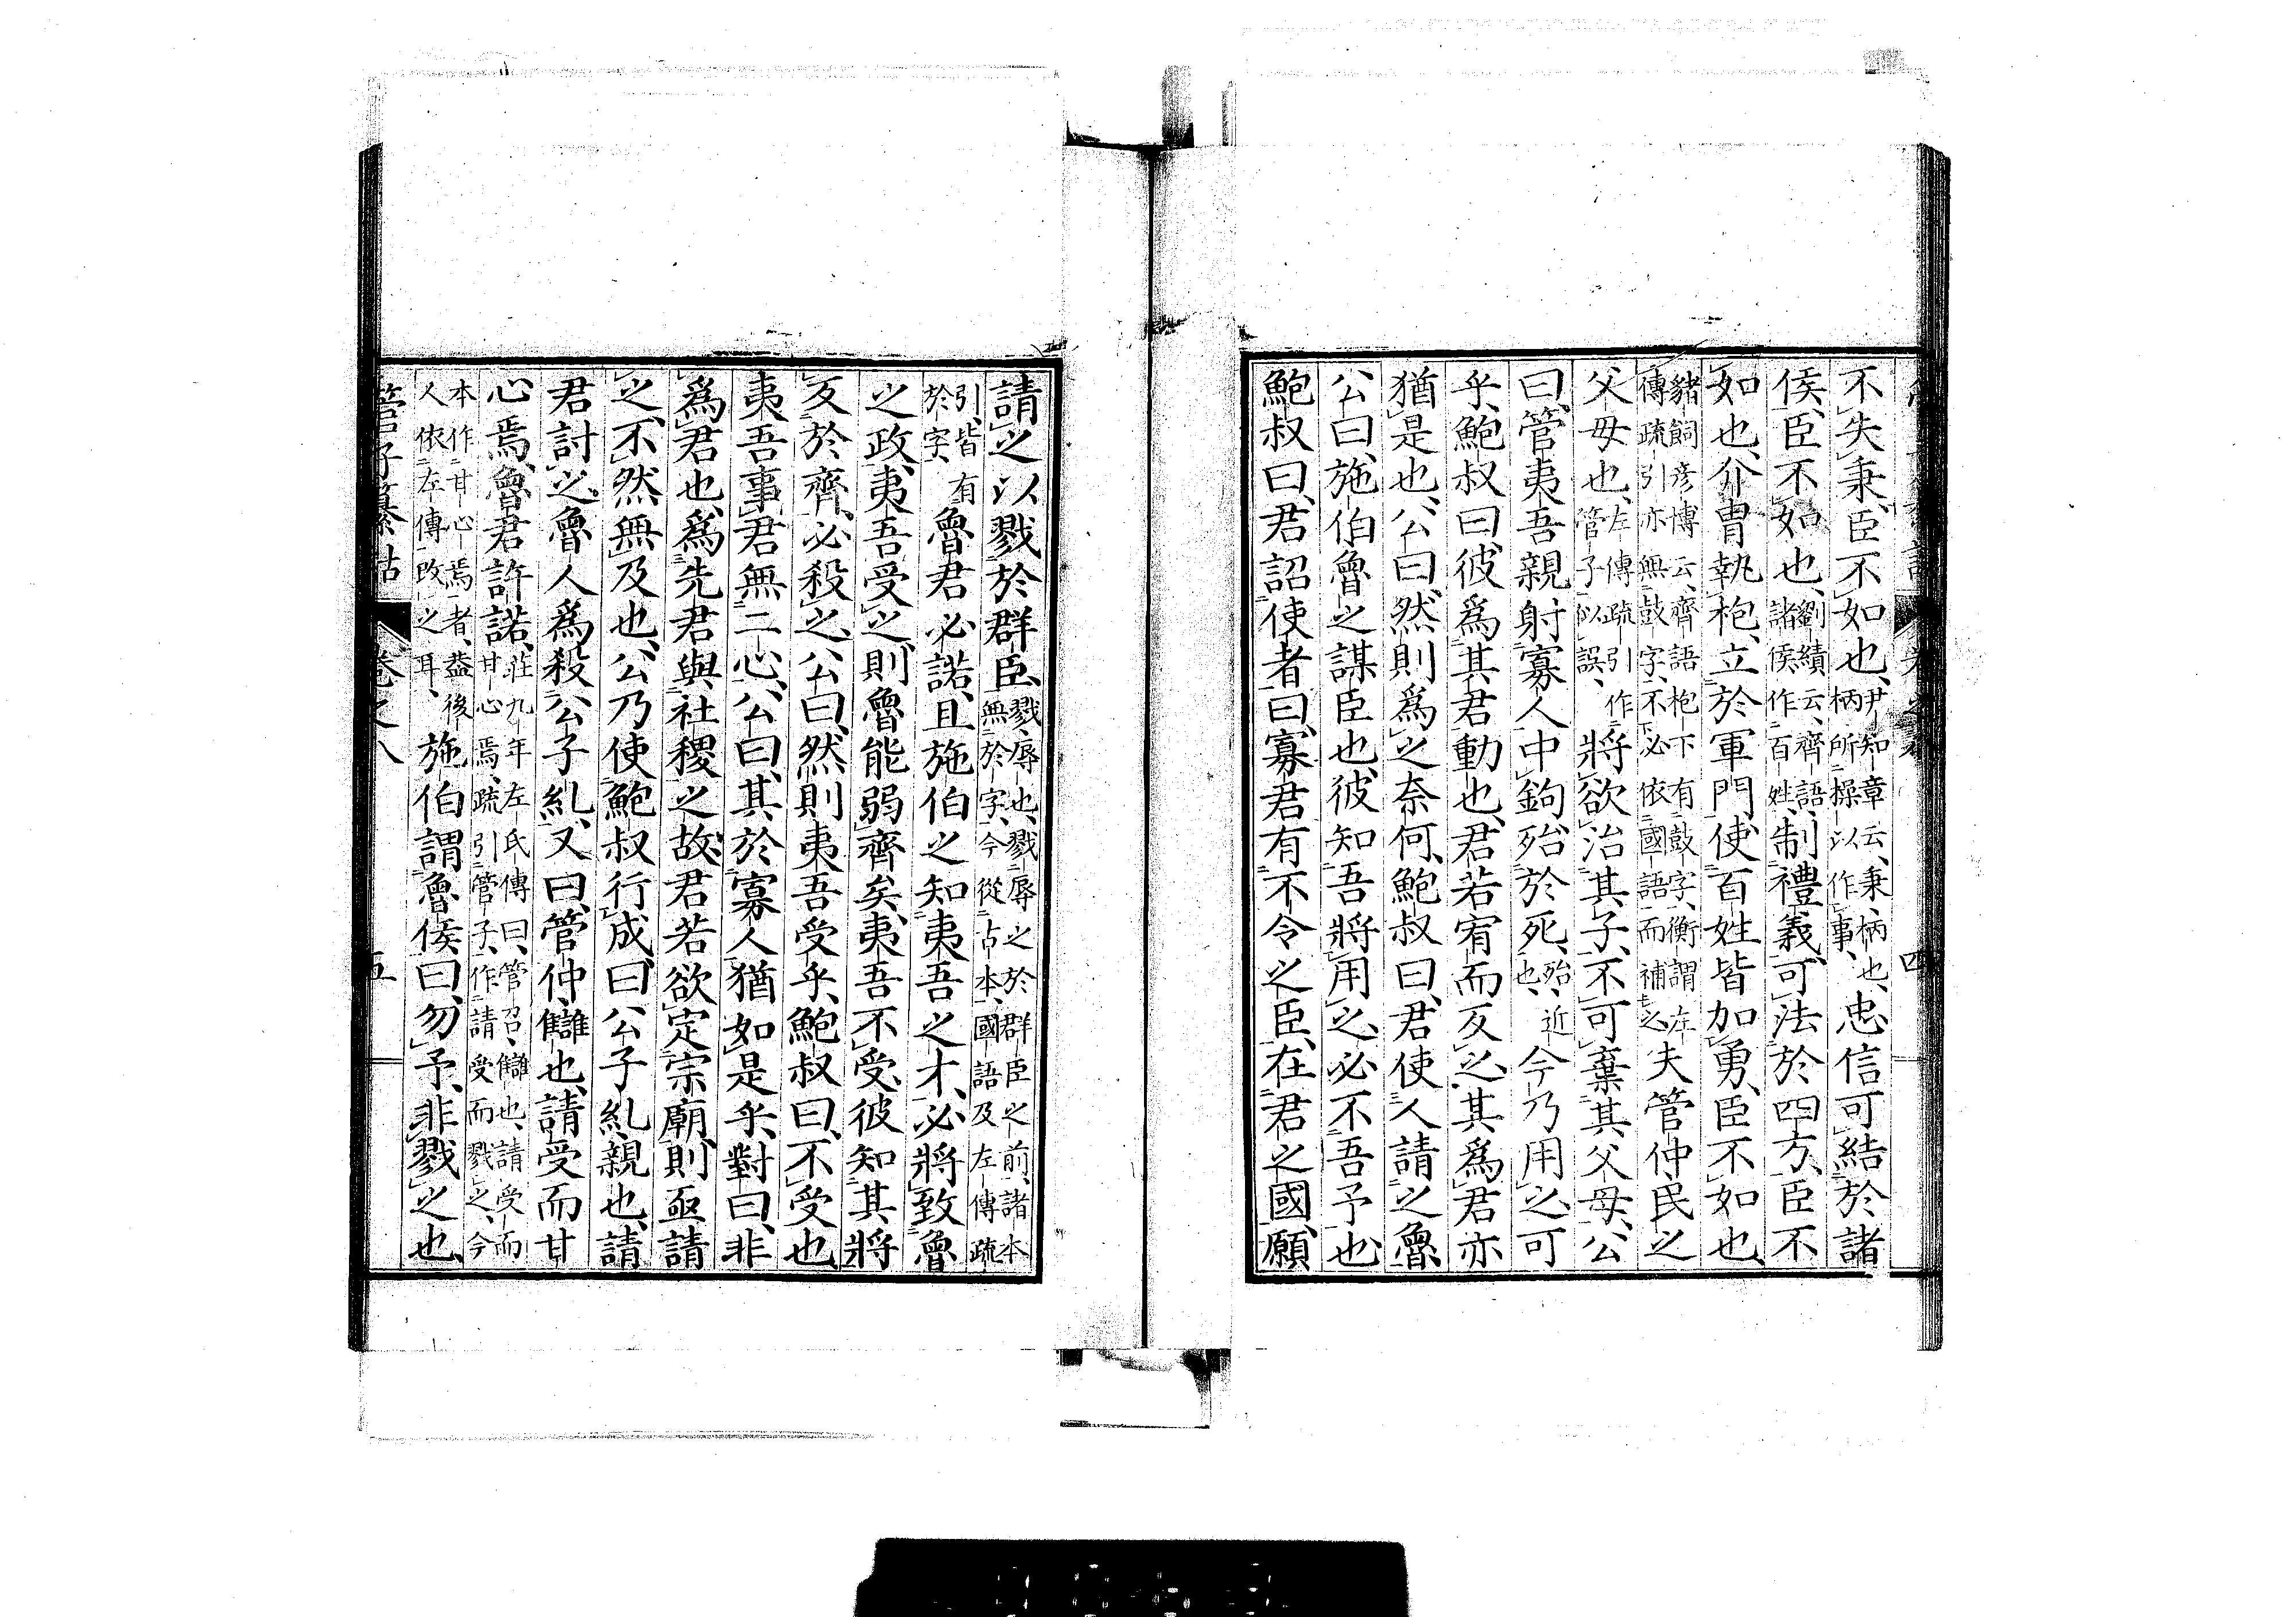 不失秉、臣不如也、尹知章云、秉、柄也、柄所操以作事、忠信可結於諸
侯、臣不如也、劉績云、齊語、諸侯作百姓、制禮義可法於四方、臣不
如也、介冑執枹、立於軍門、使百姓皆加勇、臣不如也、
豬飼彦博云、齊語枹下有鼓字、衡謂左傳疏引亦無鼓字、不必依國語而補之、夫管仲民之
父母也、左傳疏引作管子似誤、將欲治其子、不可棄其父母、公
曰、管夷吾親射寡人中鉤、殆於死、殆、近也、今乃用之可
乎、鮑叔曰、彼爲其君動也、君若宥而反之、其爲君亦
猶是也、公曰、然則爲之奈何、鮑叔曰、君使人請之魯、
公曰、施伯魯之謀臣也、彼知吾將用之、必不吾予也、
鮑叔曰、君詔使者曰、寡君有不令之臣、在君之國、願
四
請之以戮於群臣、戮、辱也、戮辱之於群臣之前、諸本無於字、今從古本、國語及左傳疏
引、皆有於字、魯君必諾、且施伯之知夷吾之才、必將致魯
之政、夷吾受之、則魯能弱齊矣、夷吾不受、彼知其將
反於齊、必殺之、公曰、然則夷吾受乎、鮑叔曰、不受也、
夷吾事君無二心、公曰、其於寡人猶如是乎、對曰、非
爲君也、爲先君與社稷之故、君若欲定宗廟、則亟請
之、不然無及也、公乃使鮑叔行成、曰、公子糺親也、請
君討之、魯人爲殺公子糺、又曰、管仲讎也、請受而甘
心焉、魯君許諾、莊九年左氏傳曰、管召、讎也、請受而甘心焉、疏引管子、作請受而戮之、今
本作甘心焉者、蓋後人依左傳改之耳、施伯謂魯侯曰、勿予、非戮之也、
管子纂詁 卷之八 五